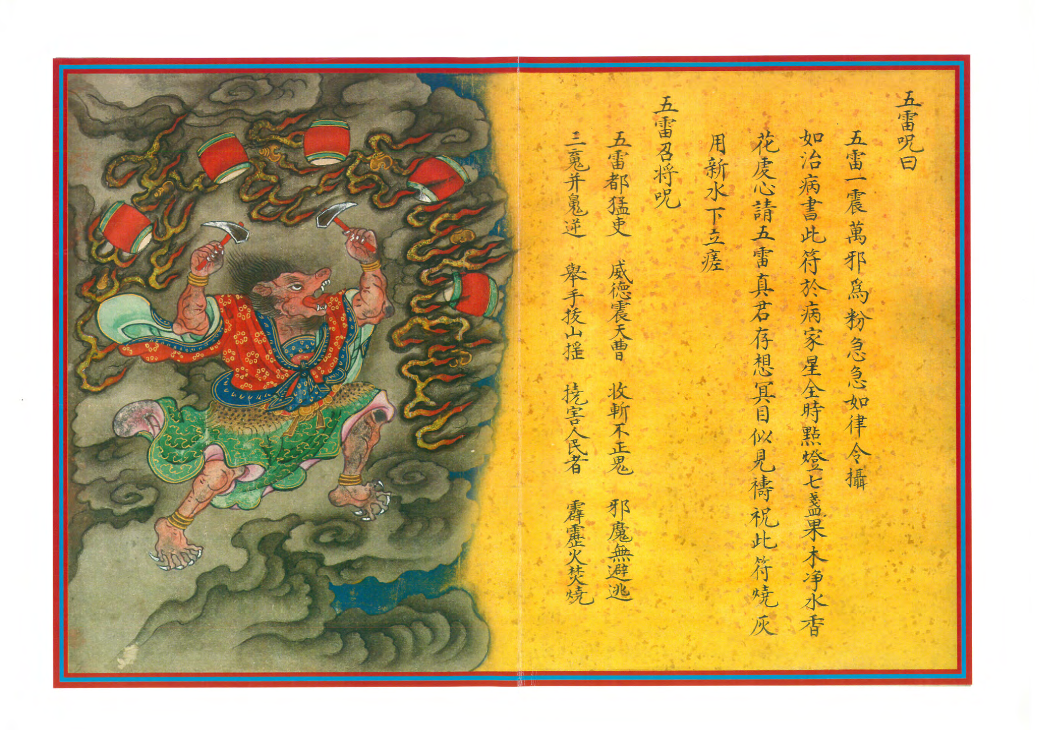 五雷呪曰
五雷一震萬邪為粉急急如律令攝
如治病書此符於病家星全時點燈七盞果木净水香
花虔心請五雷真君存想冥目似見禱祝此符燒灰
用新水下立瘥
五雷召将呪
五雷都猛吏 威德震天曹 收斬不正鬼 邪魔無避逃
三 并 逆 舉手拔山摇 撓害人民者 霹靂火焚燒